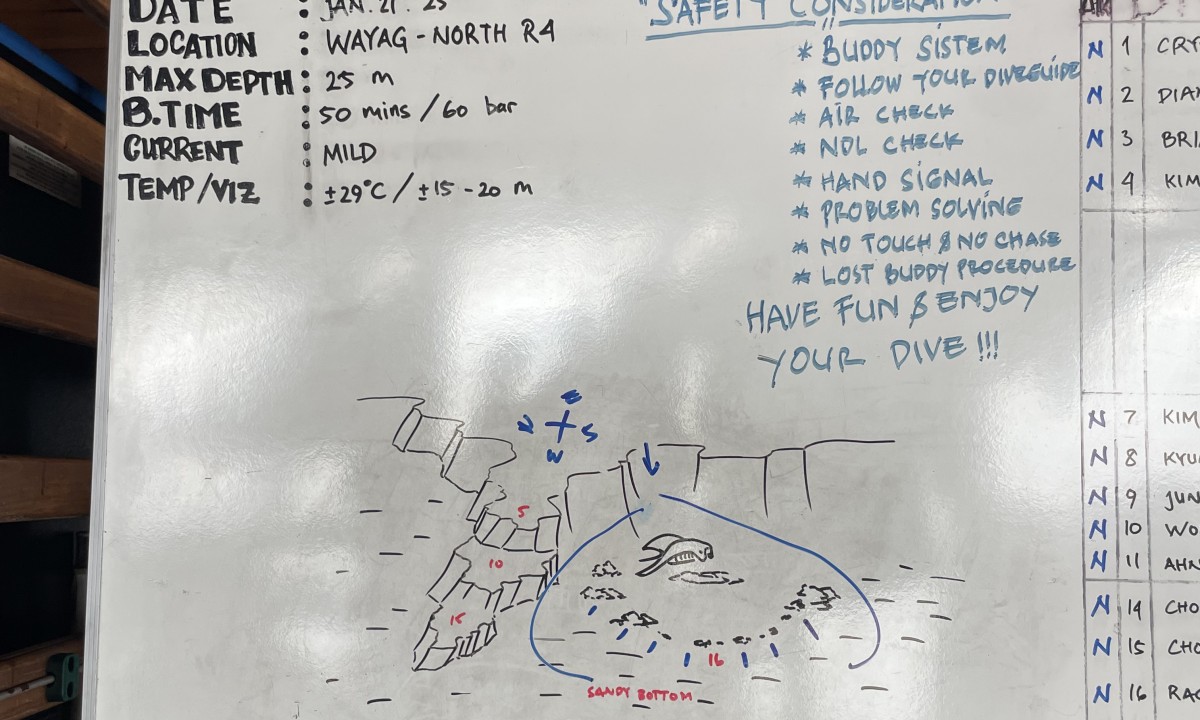 DATE : JAN. 21. 25
LOCATION : WAYAG - NORTH R4
MAX DEPTH : 25 m
B.TIME : 50 mins / 60 bar
CURRENT : MILD
TEMP/VIZ : ±29°C / ±15 - 20 m
"SAFETY CONSIDERATION
* BUDDY SISTEM
* FOLLOW YOUR DIVEGUIDE
* AIR CHECK
* NDL CHECK
* HAND SIGNAL
* PROBLEM SOLVING
* NO TOUCH & NO CHASE
* LOST BUDDY PROCEDURE
HAVE FUN & ENJOY
YOUR DIVE !!!
E
N S
W
5
10
15
16
SANDY BOTTOM
N 1 CRY
N 2 DIAN
N 3 BRI
N 4 KIM
N 7 KIM
N 8 KYU
N 9 JUN
N 10 WO
N 11 AHN
N 14 CHO
N 15 CHO
N 16 RAC